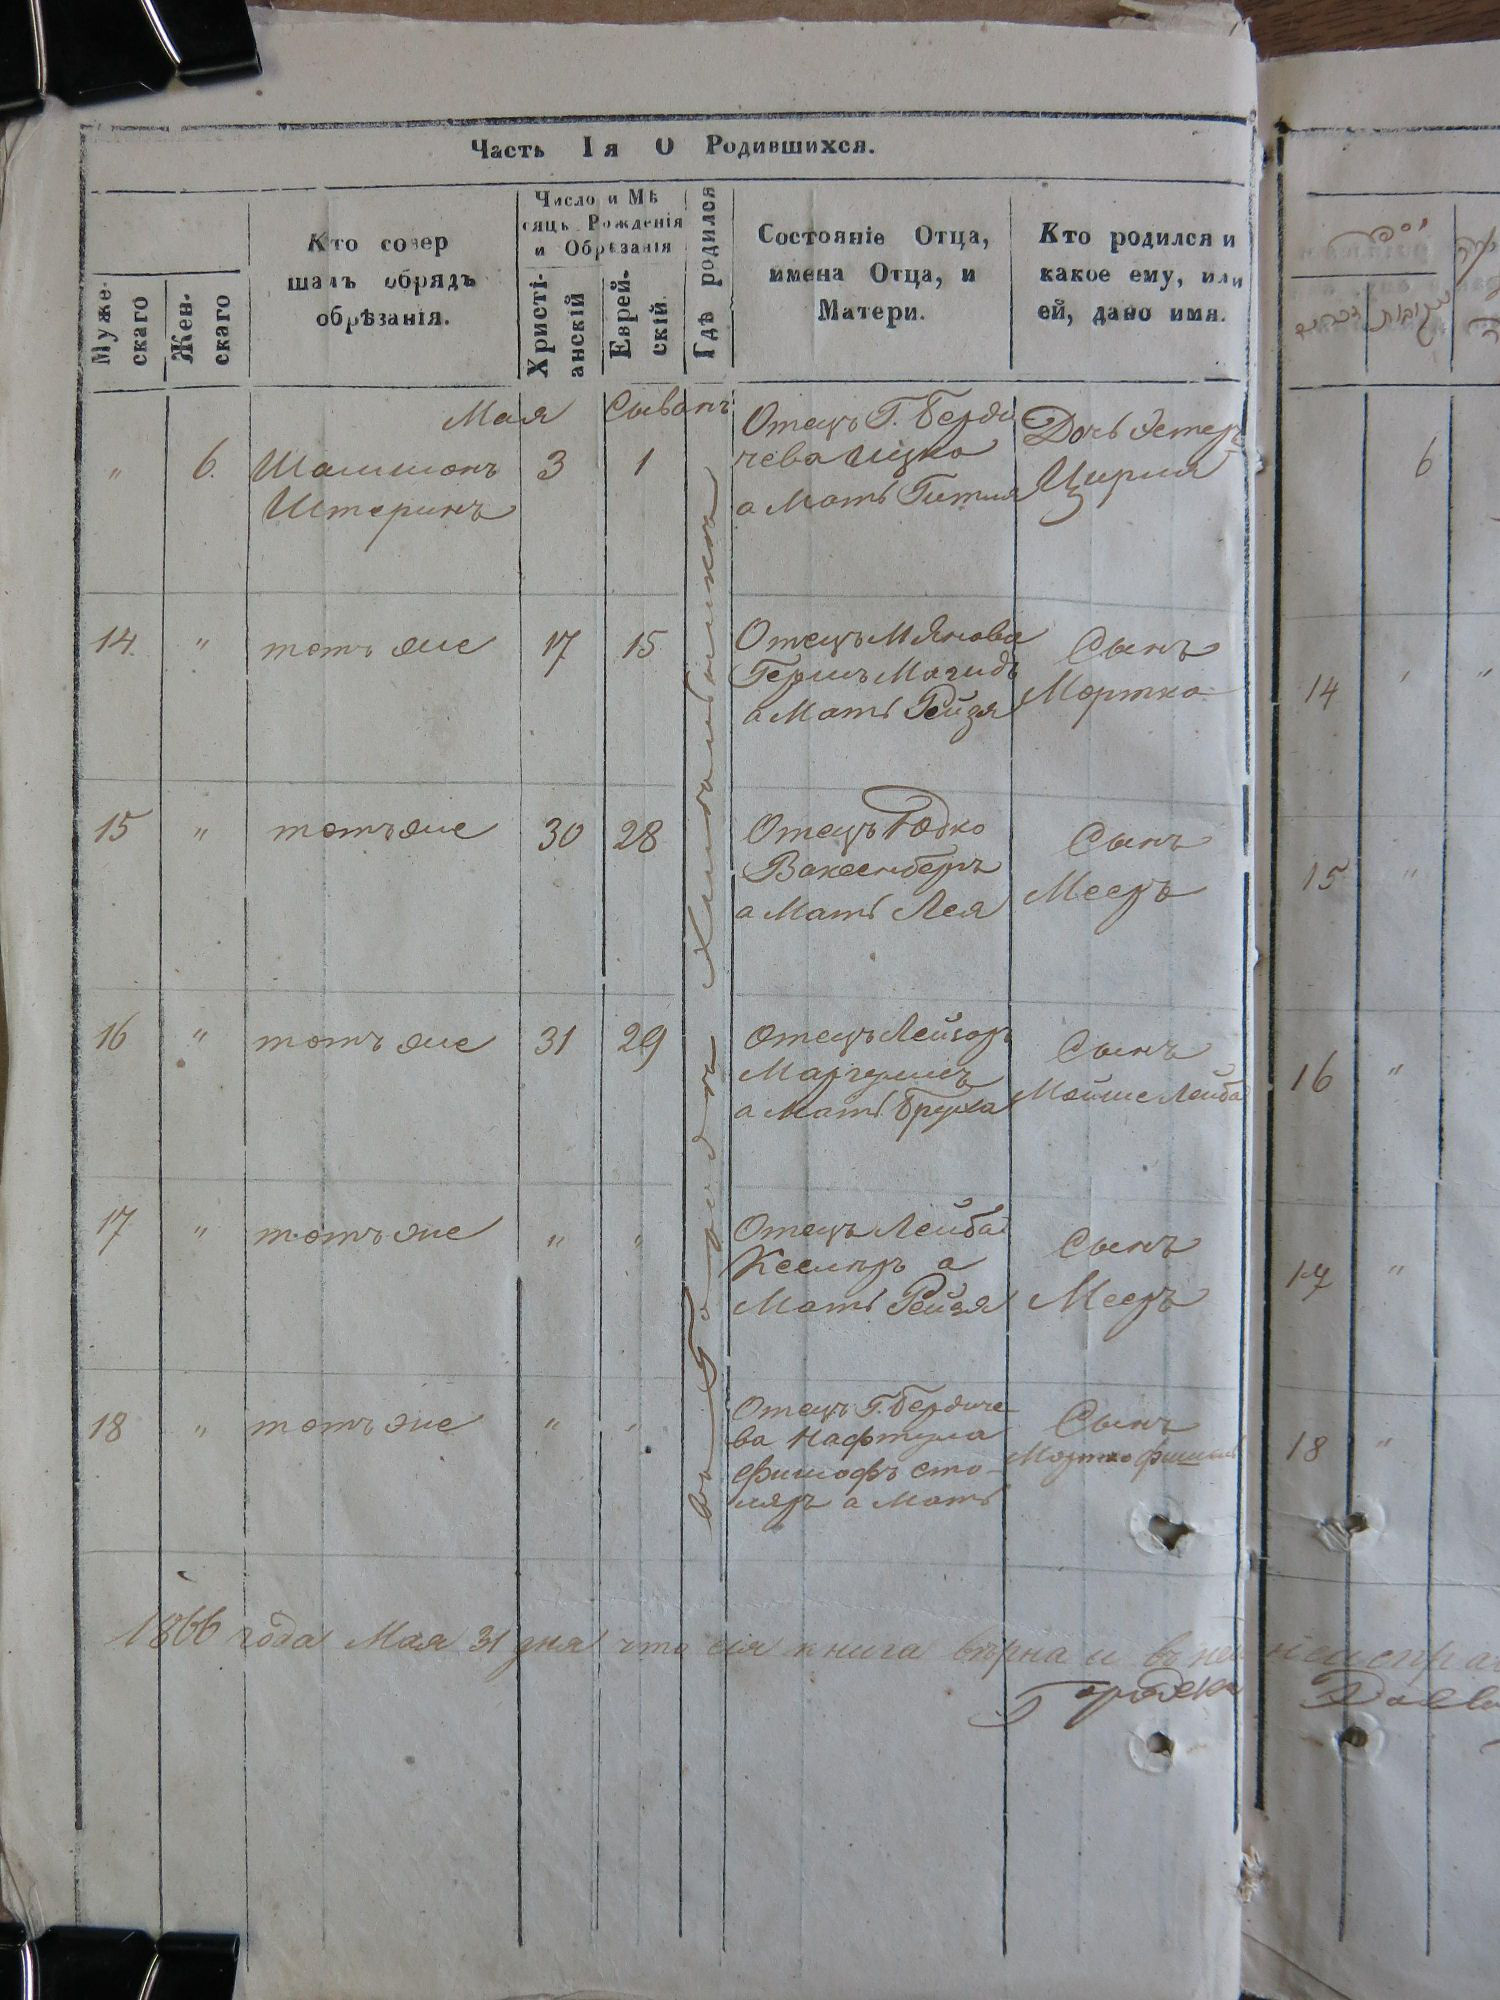 Часть Iя О Родившихся.
Муже-
скаго
Жен-
скаго
Кто совер
шалъ обрядъ
обрѣзанія.
Число и Мѣ
сяцъ Рожденія
и Обрѣзанія
Христі-
анскій
Еврей-
скій.
Гдѣ родился
Состояніе Отца,
имена Отца, и
Матери.
Кто родился и
какое ему, или
ей, дано имя.
Мая Сыванъ
„ 6. 3 1
Отецъ Г. Берди
чева Ицко
а Мать Гитля
Дочь Эстеръ
Цирля
14. „ тотъ же 17 15
Отецъ М Янова
Гершъ Магидъ
а Мать Рейзя
Сынъ
Мортко
15 „ тотъ же 30 28
Отецъ
Ваксенберъ
а Мать Лея
Сынъ
Мееръ
16 „ тотъ же 31 29
Отецъ Лейзоръ
Маргулисъ
а Мать Бруха
Сынъ
Мойше Лейба
17 „ тотъ же „ „
Отецъ Лейба
а
Мать Рейзя
Сынъ
Мееръ
18 „ тотъ же „ „
Отецъ Г. Бердиче
ва Нафтула
сто-
ляръ а Мать
Сынъ
Мортко
въ Городѣ
1866 года Мая 31 дня что сія книга вѣрна и въ
6
14 „
15 „
16 „
17 „
18 „